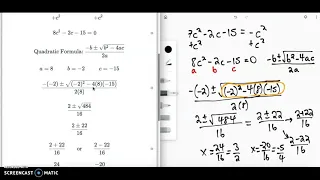 +c² +c²
8c² − 2c − 15 = 0
Quadratic Formula: (−b ± √(b² − 4ac))/2a
a = 8 b = −2 c = −15
(−(−2) ± √((−2)² − 4(8)(−15)))/2(8)
(2 ± √484)/16
(2 ± 22)/16
(2 + 22)/16 (2 − 22)/16
24 −20
7c² − 2c − 15 = −c²
+c² +c²
8c² − 2c − 15 = 0 (−b ± √(b² − 4ac))/2a
a b c
(−(−2) ± √((−2)² − 4(8)(−15)))/2(8)
(2 ± √484)/16 → (2 ± 22)/16 → (2+22)/16
(2 − 22)/16
x = 24/16 = 3/2 x = −20/16 = −5/4
SCREENCAST O MATIC